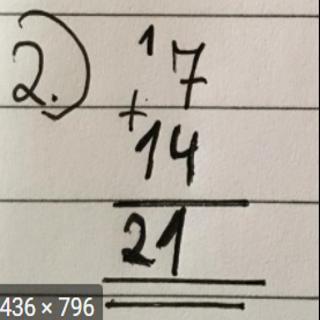 2.) 1
7
+
14
21
436 × 796